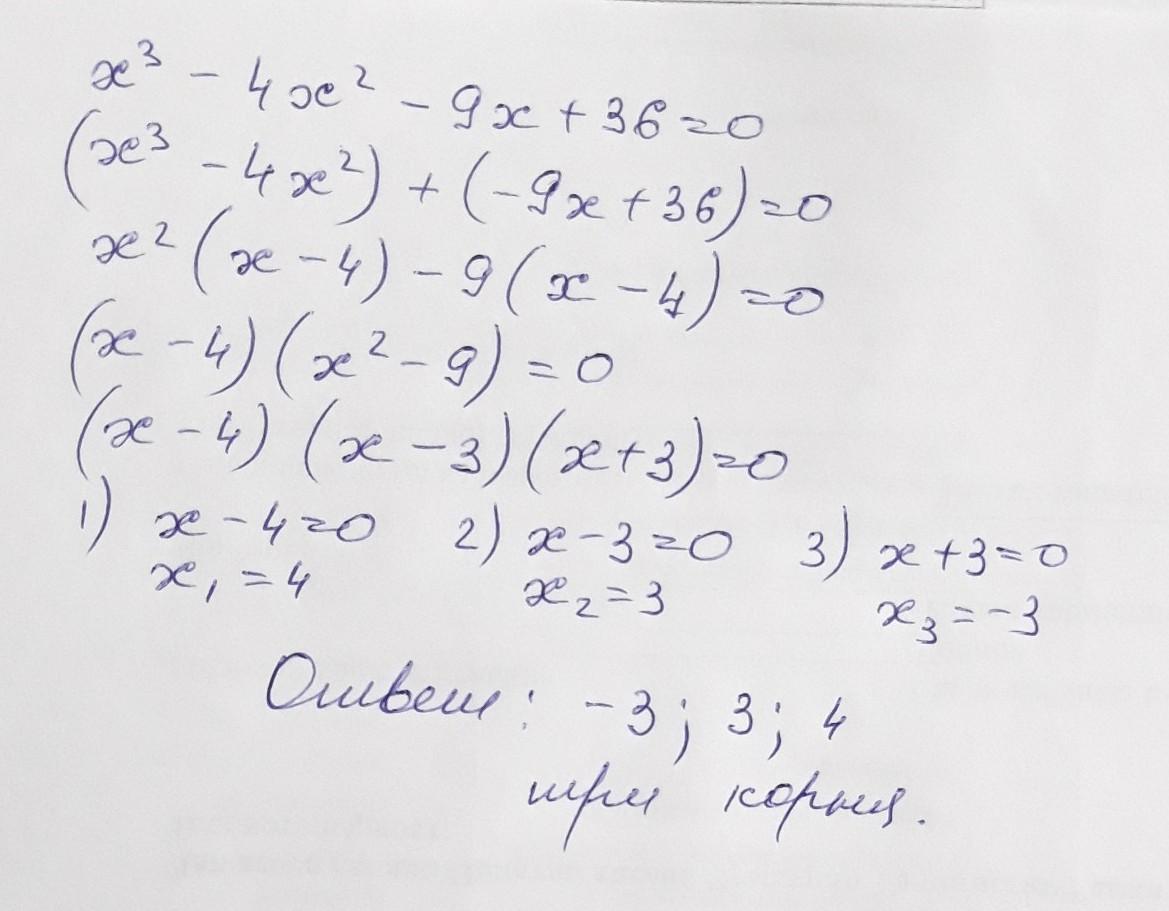 x³ - 4x² - 9x + 36 = 0
(x³ - 4x²) + (-9x + 36) = 0
x² (x - 4) - 9 (x - 4) = 0
(x - 4) (x² - 9) = 0
(x - 4) (x - 3) (x + 3) = 0
1) x - 4 = 0 2) x - 3 = 0 3) x + 3 = 0
x₁ = 4 x₂ = 3 x₃ = -3
Ответ: -3; 3; 4
три корня.